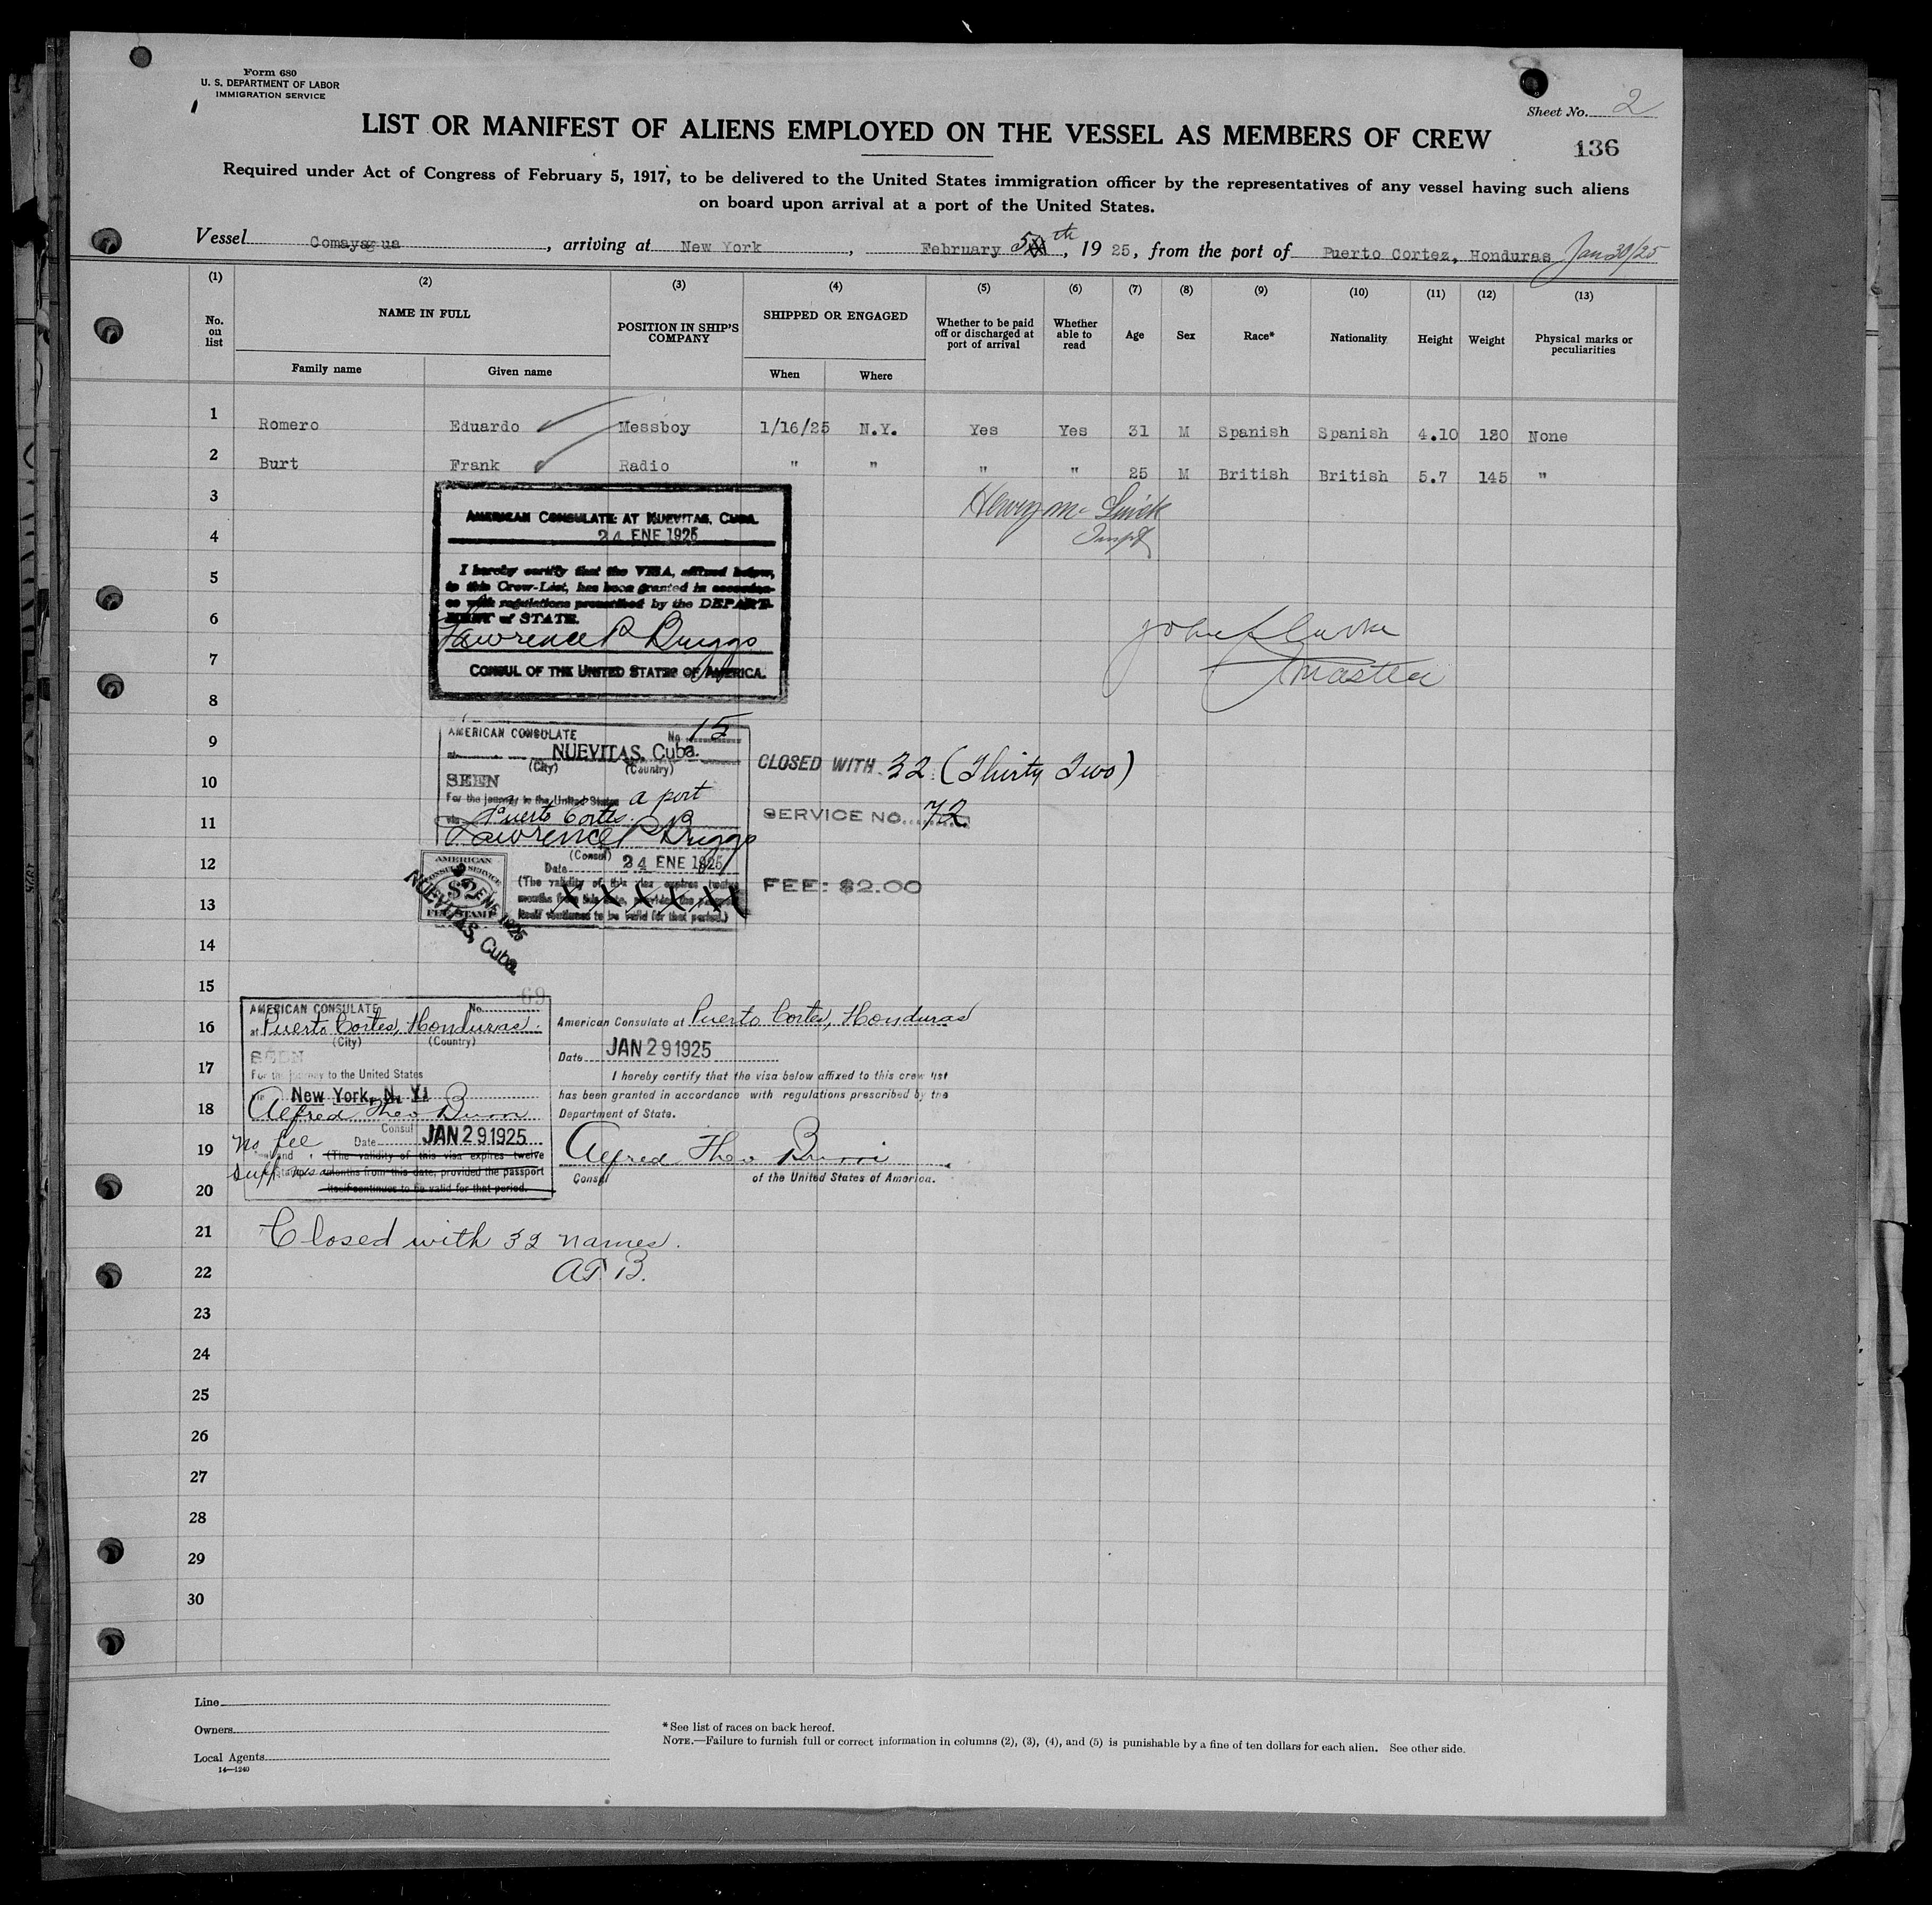 Form 680
U. S. DEPARTMENT OF LABOR
IMMIGRATION SERVICE
Sheet No. 2
LIST OR MANIFEST OF ALIENS EMPLOYED ON THE VESSEL AS MEMBERS OF CREW
136
Required under Act of Congress of February 5, 1917, to be delivered to the United States immigration officer by the representatives of any vessel having such aliens
on board upon arrival at a port of the United States.
Vessel Comayagua, arriving at New York, February 5th, 1925, from the port of Puerto Cortez, Honduras Jan 30/25
(1) (2) (3) (4) (5) (6) (7) (8) (9) (10) (11) (12) (13)
No. on list
NAME IN FULL
POSITION IN SHIP'S COMPANY
SHIPPED OR ENGAGED
Whether to be paid off or discharged at port of arrival
Whether able to read
Age
Sex
Race*
Nationality
Height
Weight
Physical marks or peculiarities
Family name Given name When Where
1 Romero Eduardo Messboy 1/16/25 N.Y. Yes Yes 31 M Spanish Spanish 4.10 120 None
2 Burt Frank Radio " " " " 25 M British British 5.7 145 "
3
AMERICAN CONSULATE AT NUEVITAS, CUBA.
4
24 ENE 1925
5
I hereby certify that the VISA, affixed below,
to this Crew-List, has been granted in accordan-
ce with regulations prescribed by the DEPART-
6
MENT of STATE.
Lawrence P Briggs
7
CONSUL OF THE UNITED STATES OF AMERICA.
Master
8
9
AMERICAN CONSULATE No. 15
at NUEVITAS, Cuba.
(City) (Country)
CLOSED WITH 32 (Thirty Two)
10
SEEN
For the journey to the United States a port
11
via Puerto Cortes.
SERVICE NO. 72
Lawrence P Briggs
12
(Consul)
Date 24 ENE 1925
(The validity of this visa expires twelve
months from this date, provided the passport
itself continues to be valid for that period.)
XXXXXX
FEE: $2.00
13
AMERICAN
CONSULAR SERVICE
$2
FEE STAMP
ENE 1925
NUEVITAS, Cuba.
14
15
69
16
AMERICAN CONSULATE No.
at Puerto Cortes, Honduras.
(City) (Country)
17
SEEN
For the journey to the United States
via New York, N. Y.
18
Alfred Theo Burri
Consul
Date JAN 29 1925
19
No fee
(The validity of this visa expires twelve
months from this date, provided the passport
itself continues to be valid for that period.
20
American Consulate at Puerto Cortes, Honduras
Date JAN 29 1925
I hereby certify that the visa below affixed to this crew list
has been granted in accordance with regulations prescribed by the
Department of State.
Alfred Theo Burri
Consul of the United States of America.
21
Closed with 32 names.
22
A.T.B.
23
24
25
26
27
28
29
30
Line
Owners
Local Agents
14—1240
*See list of races on back hereof.
NOTE.—Failure to furnish full or correct information in columns (2), (3), (4), and (5) is punishable by a fine of ten dollars for each alien. See other side.